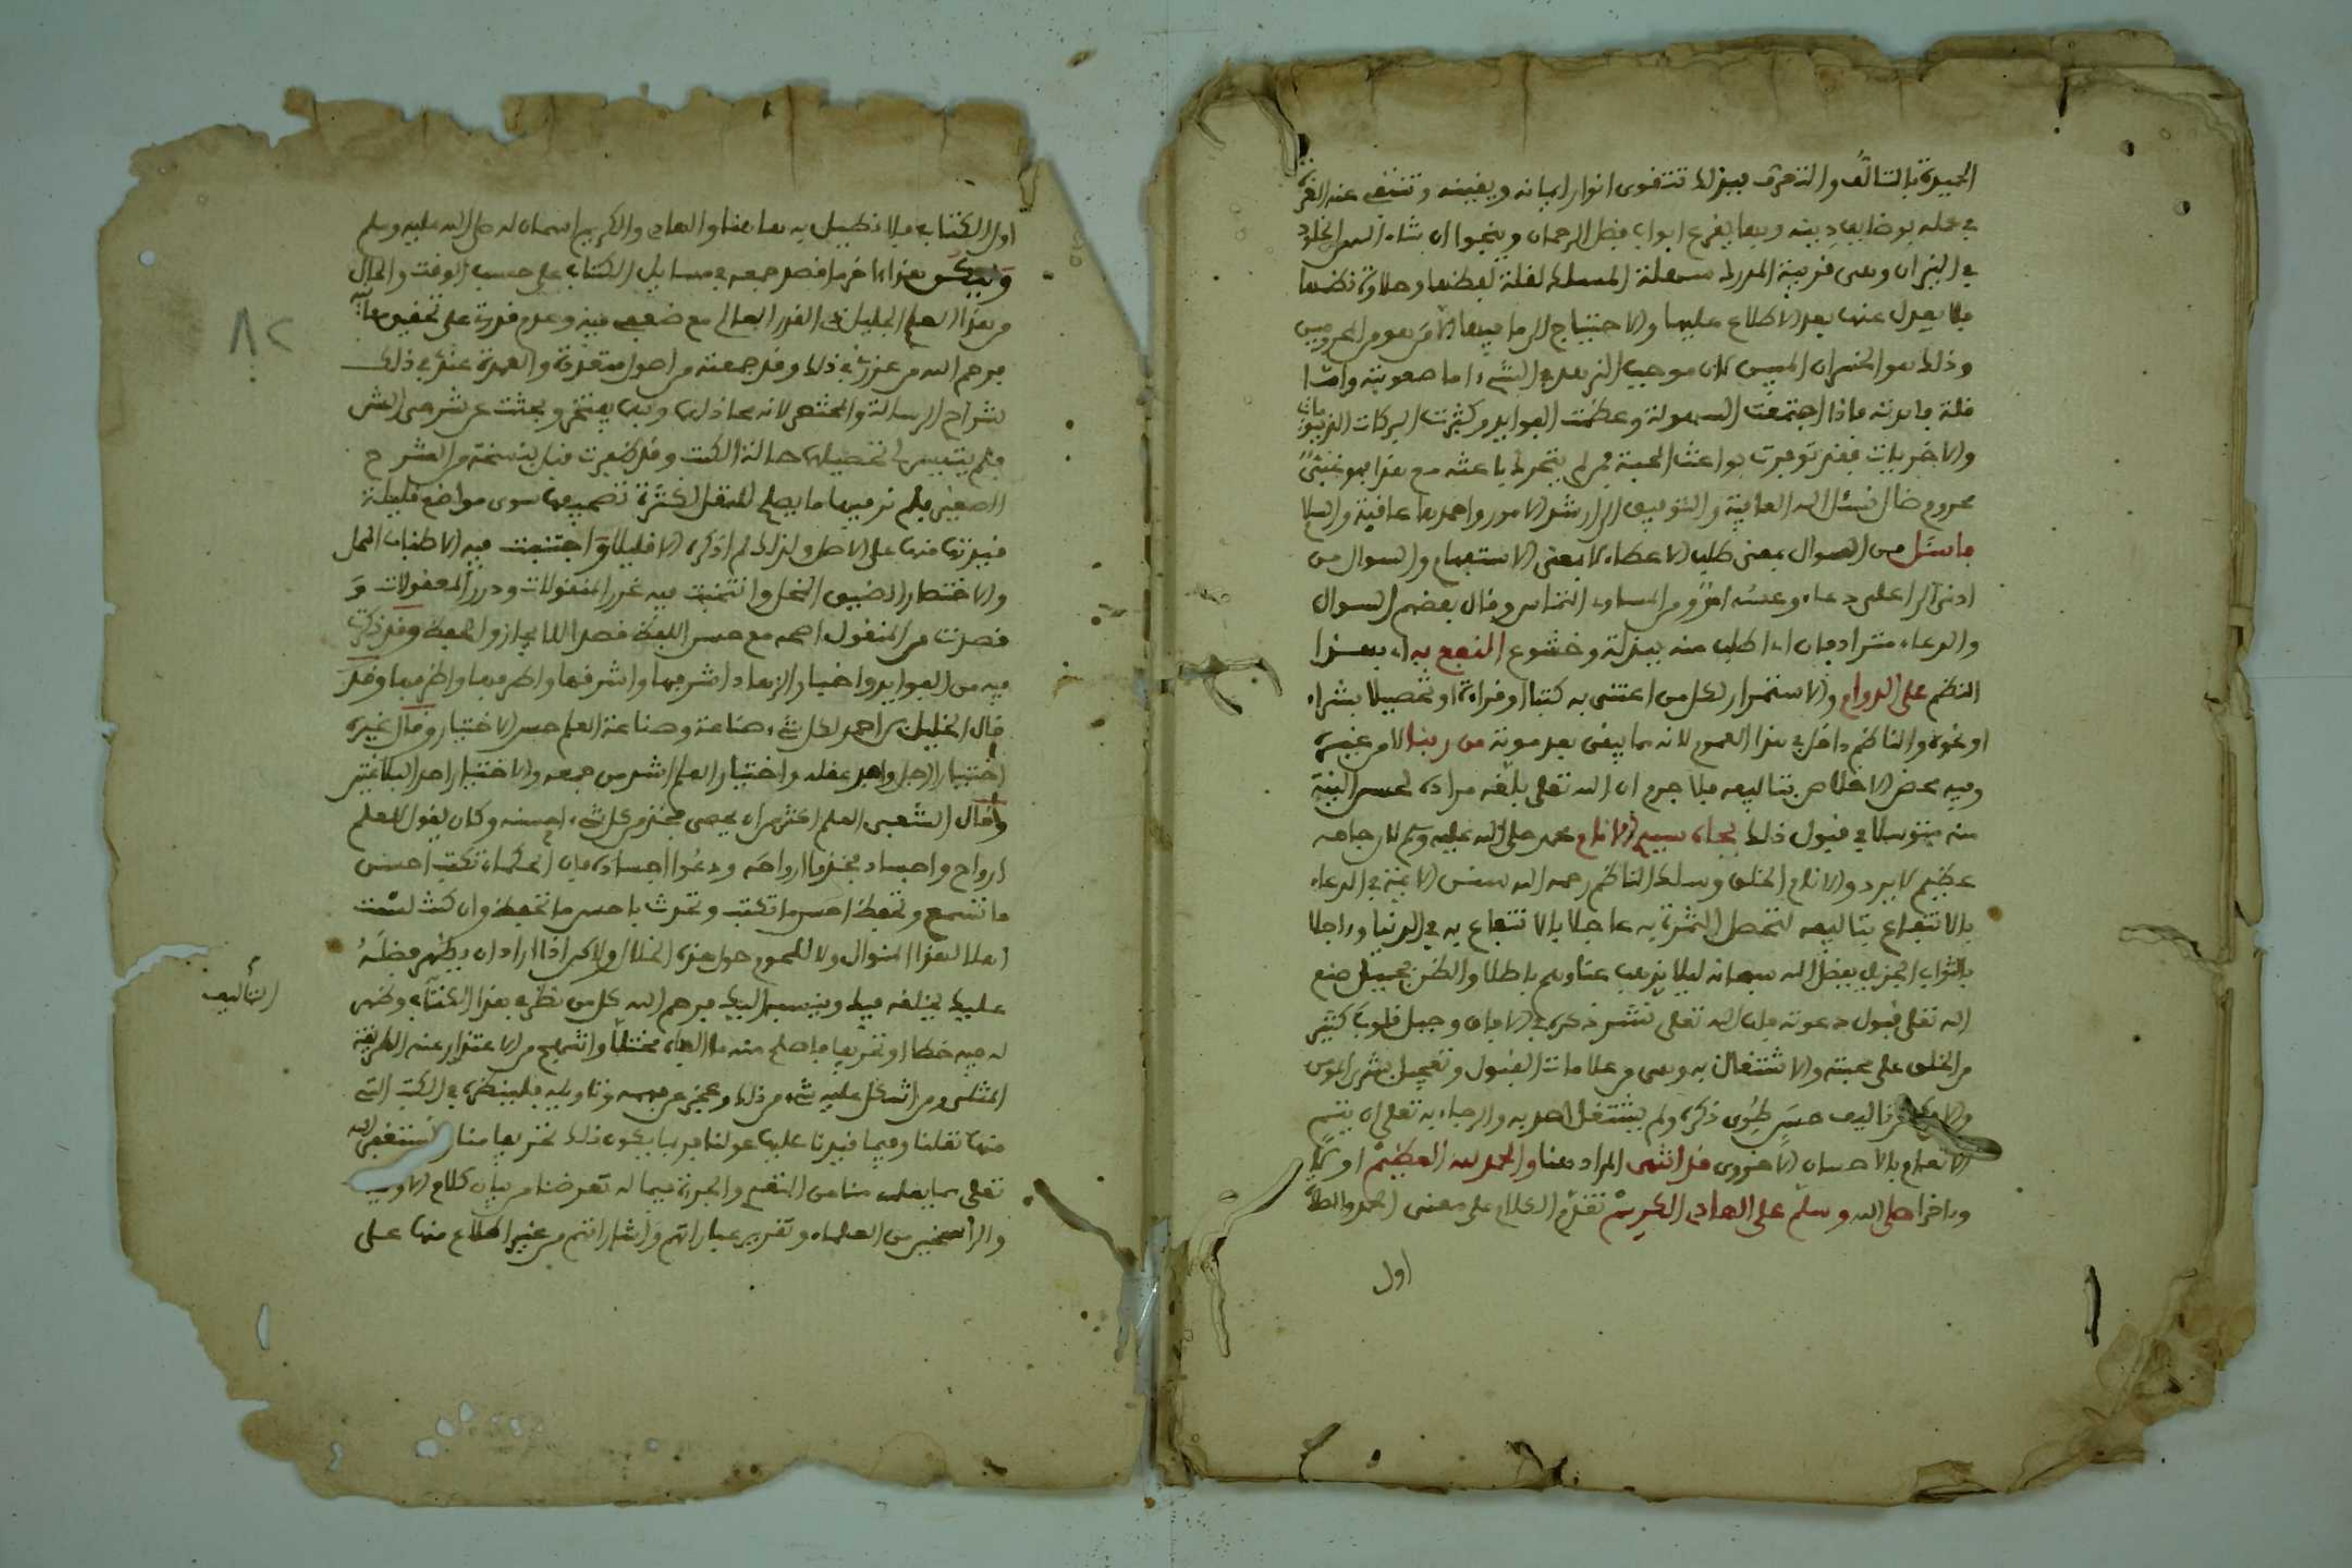 الحيرة بالتالف والتحرق فبذلك تتقوى انوار ايمانه ويقينه وتنتفي عنه الغرة
في عمله بوضايف دينه وبها يقرع ابواب فضل الرحمان وينجوا ان شاء الله من الخلود
في النيران وهي قريبة المدرك سهلة المسلك لقلة لفظها وحلاوة نظمها
فلا يعدل عنها بعد الاطلاع عليها والاحتياج الى ما فيها الا من هو من المحرومين
وذلك هو الخسران المبين لان موجب الزهد في الشيء اما صعوبته واما
قلة فايدته فاذا اجتمعت السهولة وعظمت الفوايد وكثرت البركات الدنيويات
والاخريات فقد توفرت بواعث المحبة فمن لم يتحرك باعثه مع هذا فهو غبي
محروم ضال نسئل الله العافية والتوفيق الى ارشد الامور واحمدها عاقبة
فاسئل من السوال بمعنى طلب الاعطاء لا بمعنى الاستفهام والسوال من
ادنى الى اعلى دعاء وعكسه امر ومن المساوي التماس وقال بعضهم السوال
والدعاء مترادفان اي اطلب منه بذلة وخشوع النفع به اي بهذا
النظم على الدوام والاستمرار لكل من اعتنى به كتبا او قراءة او تحصيلا بشراء
او نحوه والناظم داخل في هذا العموم لانه مما يبقى بعد موته من ربنا لا من غيره
وفيه محض الاخلاص بتاليفه فلا جرم ان الله تعلى بلغه مراده لحسن النية
منه متوسلا في قبول ذلك بجاه سيد الانام محمد صلى الله عليه وسلم لان جاهه
عظيم لا يرد والانام الخلق وسلك الناظم رحمه الله سنن الايمة في الدعاء
بالانتفاع بتاليفه لتحصل الثمرة به عاجلا بالانتفاع به في الدنيا واجلا
بالثواب الجزيل بفضل الله سبحانه ليلا يذهب عناوهم باطلا والظن بجميل صنع
الله تعلى قبول دعوته فان الله تعلى نشر ذكره في الافاق وجبل قلوب كثير
من الخلق على محبته والاشتغال به وهي من علامات القبول وتعجيل بشرى المومن
والا فكم من تاليف حسن طوي ذكره ولم يشتغل احد به والرجاء به تعلى ان يتم
الانعام بالاحسان الاخروي قد انتهى المراد هنا والحمد لله العظيم اولا
وءاخرا صلى الله وسلم على الهادي الكريم تقدم الكلام على معنى الحمد والصلاة
اول
اول الكتاب فلا نطيل به هاهنا والهادي والكريم اسمان له صلى الله عليه وسلم
وليكن هذا ءاخر ما قصد جمعه في مسايل الكتاب على حسب الوقت والحال
من هذا العلم الجليل في القدر العالي مع ضعفي فيه وعدم قدرتي على تحقيق معانيه
فرحم الله من عذرني في ذلك وقد جمعته من اصول متعددة والعمدة عندي في ذلك
شراح الرسالة والمختصر لانه محاذ لها وبها يفتخر وبحثت عن شرحي الشيخ
فلم يتيسر لي تحصيلهما حالة الكتب وقد ظفرت قبل بنسخة من الشرح
الصغير فلم نر فيها ما يصلح للنقل لكثرة تصحيفها سوى مواضع قليلة
قيدتها منها على الاصل ولذلك لم اذكره الا قليلا واجتنبت فيه الاطناب الممل
والاختصار الضيق المخل وانتخبت فيه غرر المنقولات ودرر المعقولات و
قصدت من المنقول اصحه مع حسن اللفظ قصدا للايجاز والحفظ وقد ذكرت
فيه من الفوايد واخبار الزهاد اشرفها واشرقها واطرفها واظرفها وقد
قال الخليل بن احمد لكل شيء صناعة وصناعة العلم حسن الاختيار وقال غيره
اختيار الرجل وافد عقله واختيار العلم اشد من جمعه والاختيار احد البلاغتين
وقال الشعبي العلم اكثر من ان يحصى فخذ من كل شيء احسنه وكان يقول للعلم
ارواح واجساد فخذوا ارواحه ودعوا اجساده فان الحكماء تكتب احسن
ما تسمع وتحفظ احسن ما تكتب وتحدث باحسن ما تحفظ وان كنت لست
اهلا لهذا المنوال ولا للحوم حول هذه الخلال ولاكن اذا اراد ان يظهر فضله
عليك يخلقه فيك وينسبه اليك فرحم الله كل من نظر في هذا الكتاب وظهر
التأليف
له فيه خطا او تحريف فاصلح منه ما الفاه مختلا وانتهج من الاعتذار عنه الطريقة
المثلى ومن اشكل عليه شيء من ذلك وعجز عن فهمه وتاويله فلينظره في الكتب التي
منها نقلنا وفيما قيدنا عليها عولنا فربما يكون ذلك تحريفا منا ونستغفر الله
تعلى مما يعلمه منا من التقحم والجرءة فيما له تعرضنا من بيان كلام
والراسخين من العلماء وتقرير عباراتهم واشاراتهم من غير اطلاع منها على
٨٢